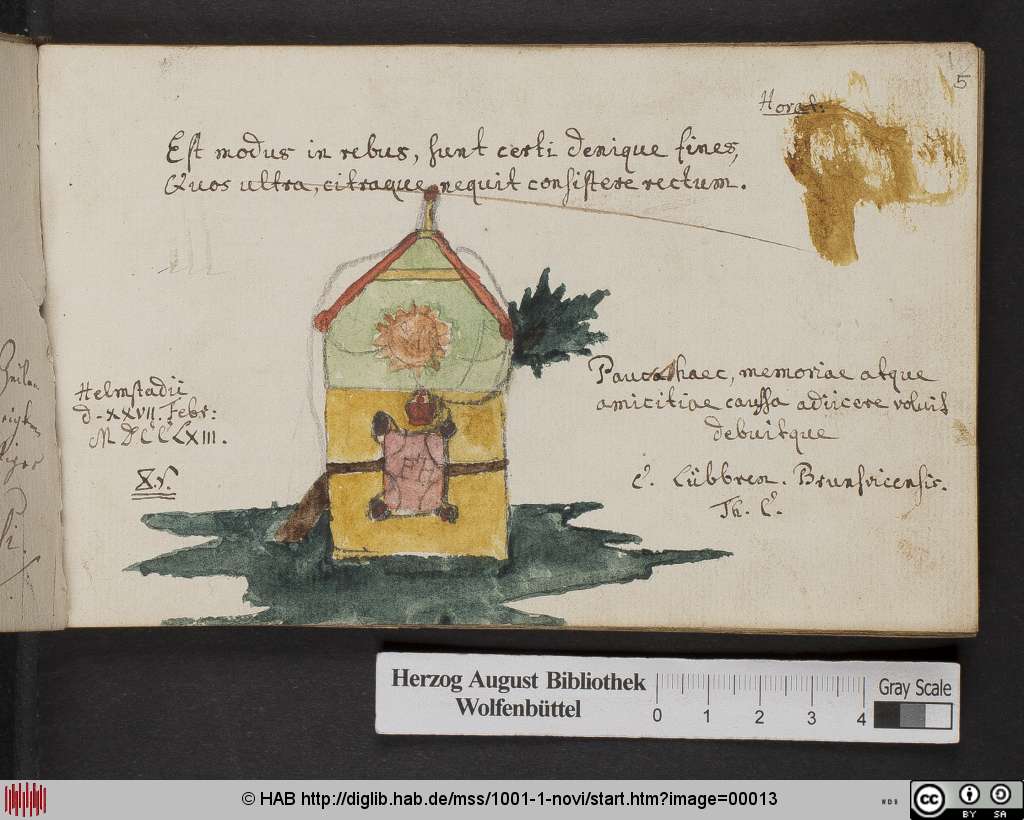 5
Horat:
Est modus in rebus, sunt certi denique fines,
Quos ultra, citraque nequit consistere rectum.
Helmstadii
d. XXVII Febr:
MDCCLXIII.
Pauca haec, memoriae atque
amicitiae caussa adiicere voluit
debuitque
C. Lübbren. Brunsvicensis.
Th. C.
Herzog August Bibliothek
Wolfenbüttel
0 1 2 3 4
Gray Scale
© HAB http://diglib.hab.de/mss/1001-1-novi/start.htm?image=00013
cc BY SA